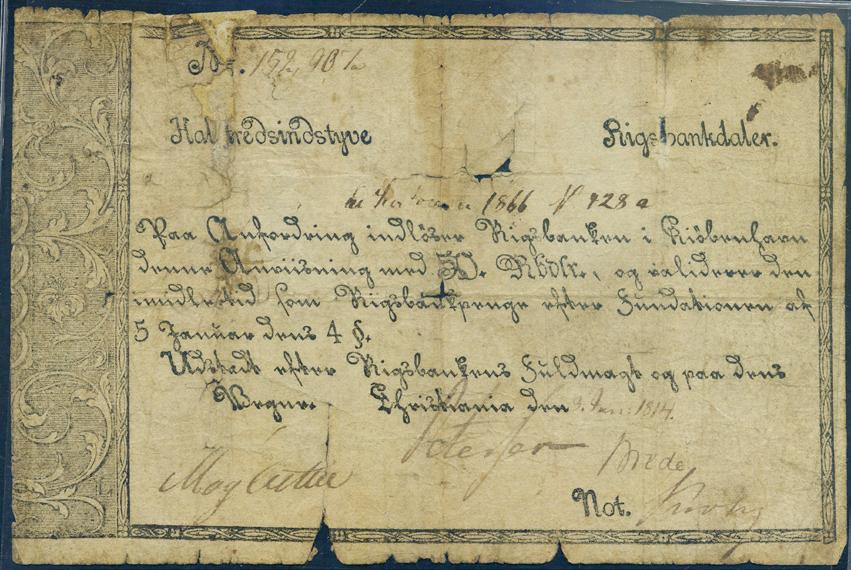 No.
Halvtredsindstyve Rigsbankdaler.
1866 N 428 a
Paa Anfordring indlöser Rigsbanken i Kiöbenhavn
denne Anviisning med 50. Rbdlr., og validerer den
imidlertid som Rigsbankpenge efter Fundationen af
5 Januar dens 4 §.
Udstedt efter Rigsbankens Fuldmagt og paa dens
Vegne. Christiania den 3. Jan: 1814.
Petersen Brede
Not.